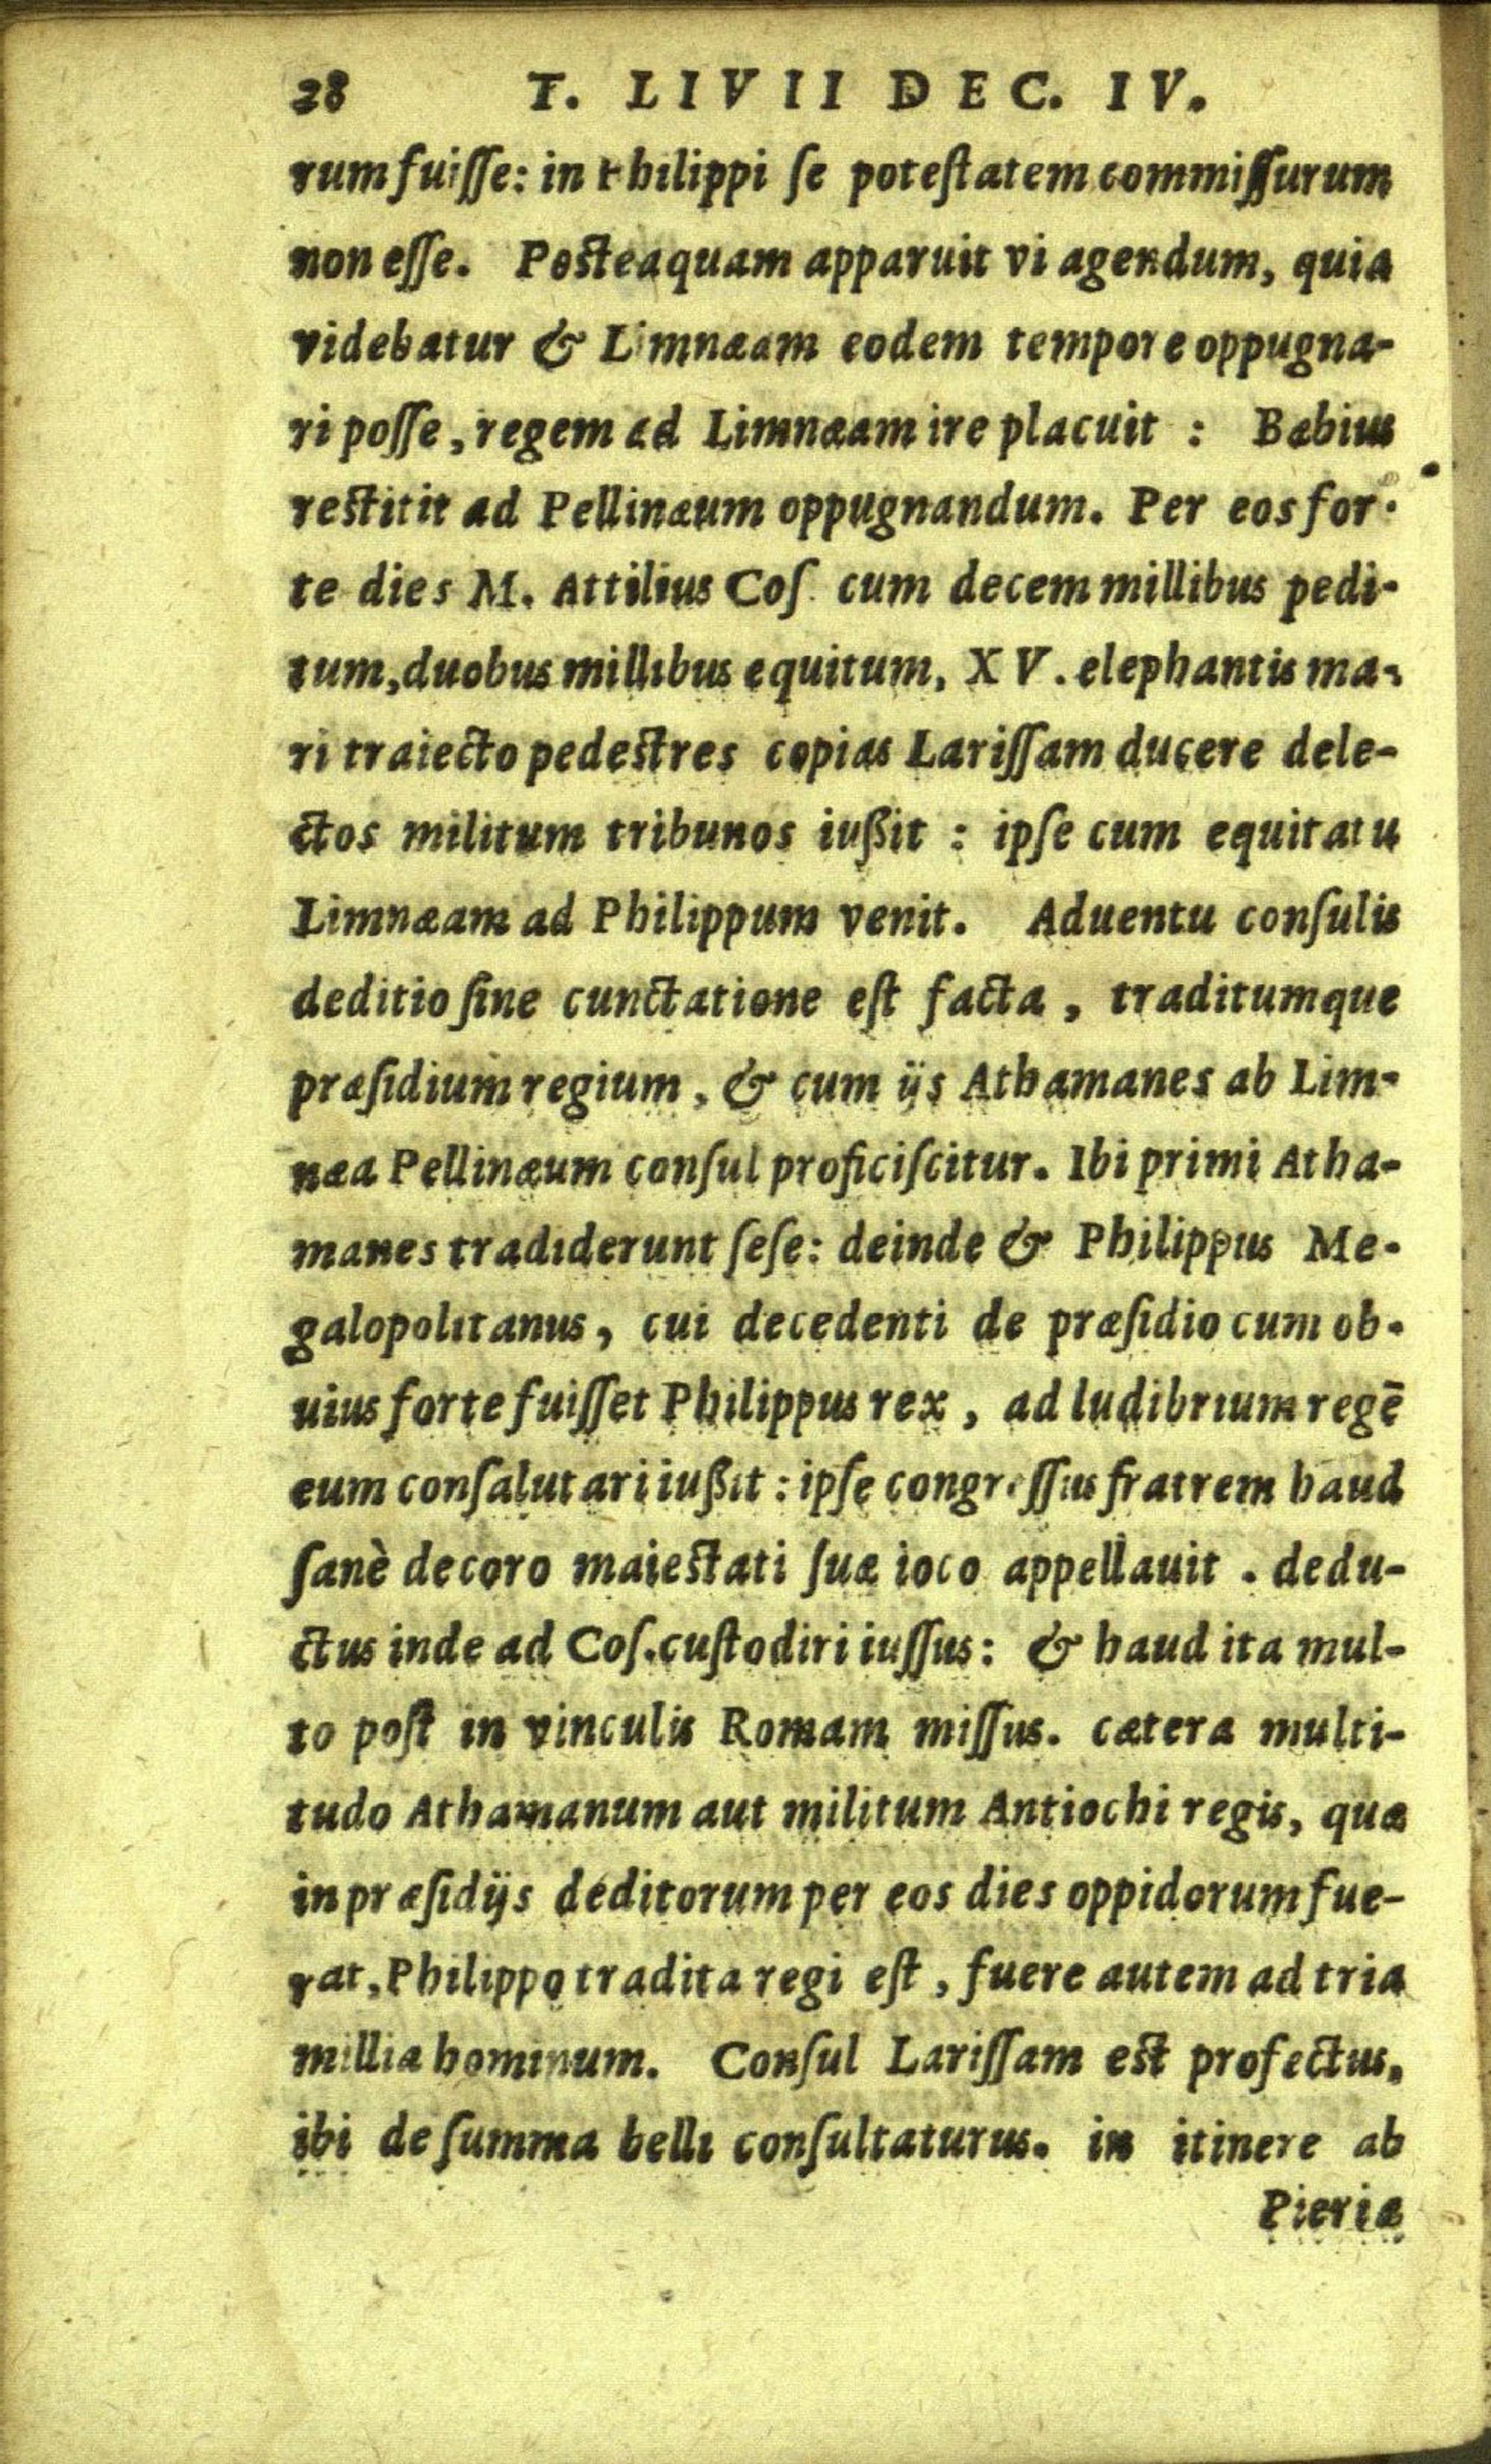 28 T. LIVII DEC. IV.
rum fuiſſe: in Philippi ſe poteſtatem commiſſurum
non eſſe. Poſteaquam apparuit vi agendum, quia
videbatur & Limnæam eodem tempore oppugna-
ri poſſe, regem ad Limnæam ire placuit : Bæbius
reſtitit ad Pellinæum oppugnandum. Per eos for-
te dies M. Attilius Coſ. cum decem millibus pedi-
tum, duobus millibus equitum, XV. elephantis ma-
ri traiecto pedeſtres copias Lariſſam ducere dele-
ctos militum tribunos iußit : ipſe cum equitatu
Limnæam ad Philippum venit. Aduentu conſulis
deditio ſine cunctatione eſt facta, traditumque
præſidium regium, & cum ijs Athamanes ab Lim-
næa Pellinæum conſul proficiſcitur. Ibi primi Atha-
manes tradiderunt ſeſe: deinde & Philippus Me-
galopolitanus, cui decedenti de præſidio cum ob-
uius forte fuiſſet Philippus rex, ad ludibrium regē
eum conſalutari iußit : ipſe congreſſus fratrem haud
ſanè decoro maieſtati ſuæ ioco appellauit. dedu-
ctus inde ad Coſ. cuſtodiri iuſſus: & haud ita mul-
to poſt in vinculis Romam miſſus. cætera multi-
tudo Athamanum aut militum Antiochi regis, quæ
in præſidijs deditorum per eos dies oppidorum fue-
rat, Philippo tradita regi eſt, fuere autem ad tria
millia hominum. Conſul Lariſſam eſt profectus,
ibi de ſumma belli conſultaturus. in itinere ab
Pieria